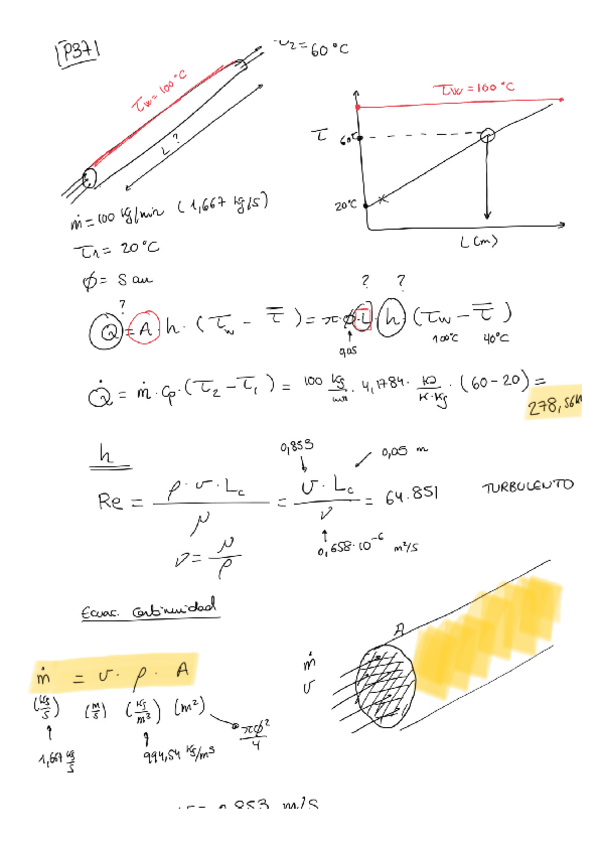 P37
T2 = 60°C
Tw = 100°C
L?
ṁ = 100 kg/min (1,667 kg/s)
T1 = 20°C
φ = 5 cm
Tw = 100°C
T
60°C
20°C
L (m)
? ? ?
Q = A · h · (Tw - T̿) = π · φ · L · h · (Tw - T̿)
0,05 100°C 40°C
Q̇ = ṁ · cp · (T2 - T1) = 100 kg/min · 4,1784 · kJ/K·kg · (60 - 20) =
278,56k
h
0,853 0,05 m
Re = ρ · v · Lc / μ = v · Lc / ν = 64.851 TURBULENTO
ν = μ/ρ
0,658·10⁻⁶ m²/s
Ecuac. Continuidad
ṁ = v · ρ · A
(kg/s) (m/s) (kg/m³) (m²)
πφ²/4
1,667 kg/s
994,54 kg/m3
A
ṁ
v
v = 0,853 m/s